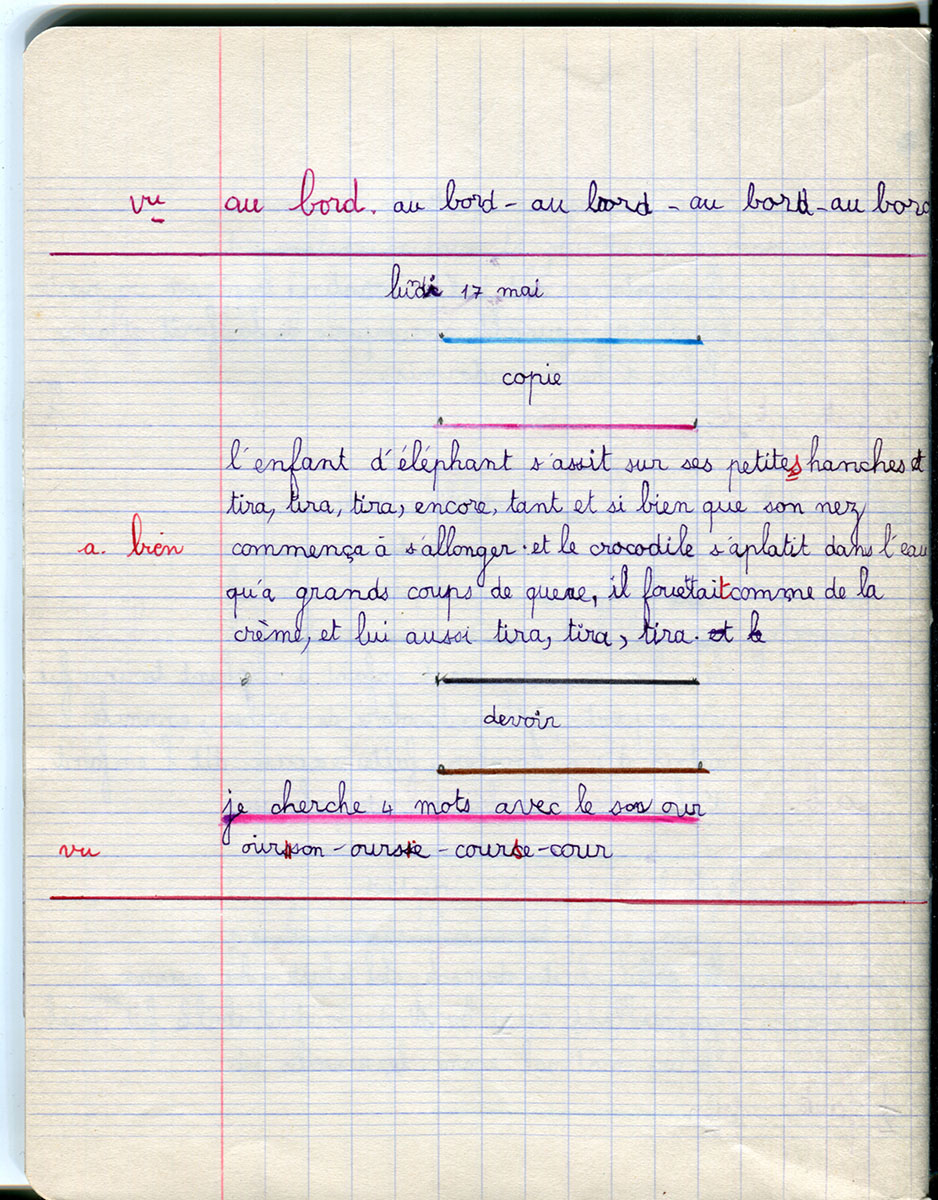 vu au bord. au bord - au bord - au bord - au bord
lundi 17 mai
copie
l'enfant d'éléphant s'assit sur ses petites hanches et
tira, tira, tira, encore, tant et si bien que son nez
a. bien commença à s'allonger. et le crocodile s'aplatit dans l'eau
qu'a grands coups de queue, il fouettait comme de la
crème, et lui aussi tira, tira, tira. et le
devoir
je cherche 4 mots avec le son our
vu ourson - ourse - course - cour